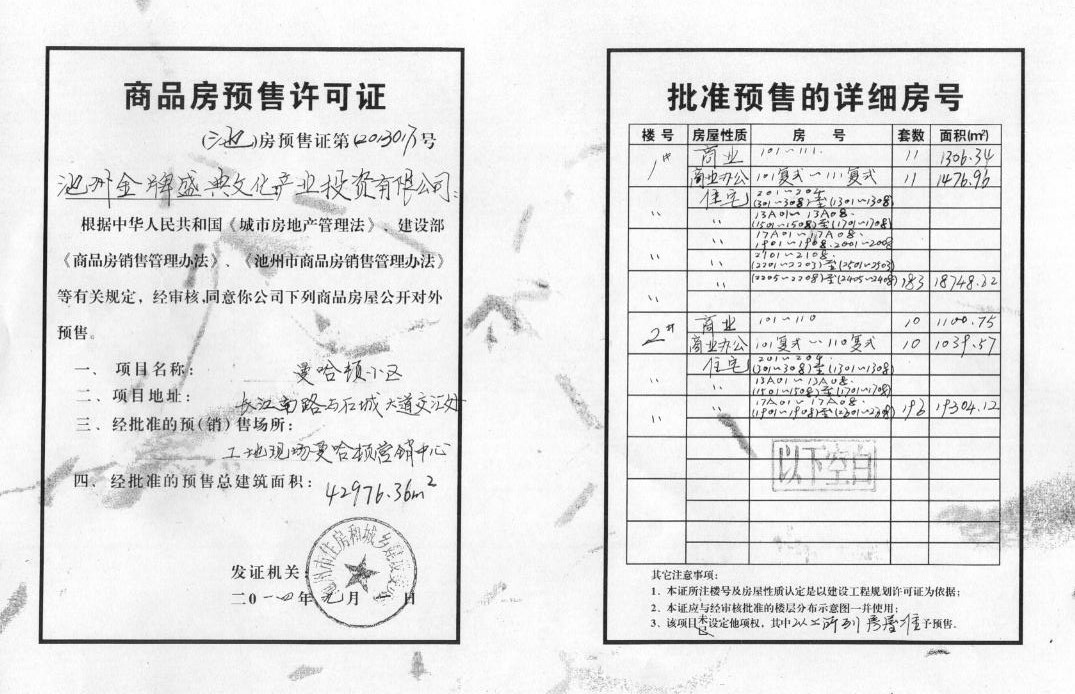 商品房预售许可证
(池)房预售证第(201301)号
池州金牌盛典文化产业投资有限公司:
根据中华人民共和国《城市房地产管理法》、建设部
《商品房销售管理办法》、《池州市商品房销售管理办法》
等有关规定，经审核,同意你公司下列商品房屋公开对外
预售。
一、项目名称: 曼哈顿小区
二、项目地址: 长江南路与石城大道交汇处
三、经批准的预(销)售场所:
工地现场曼哈顿营销中心
四、经批准的预售总建筑面积: 42976.36m²
池州市住房和城乡建设委员会
发证机关:
二0一四年元月 日
批准预售的详细房号
楼号 房屋性质 房号 套数 面积(m²)
1# 商业 101~111. 11 1306.34
商业办公 101复式~111复式 11 1476.96
住宅 201~204
(301~308)至(1301~1308)
〃 13A01~13A08.
(1501~1508)至(1701~1708)
〃 〃 17A01~17A08.
1901~1908.2001~2008
〃 2101~2108.
(2201~2203)至(2501~2503)
〃 〃 (2205~2208)至(2405~2408) 183 18748.22
2# 商业 101~110 10 1100.75
商业办公 101复式~110复式 10 1039.57
住宅 201~204.
(301~308)至(1301~1308)
〃 〃 13A01~13A08.
(1501~1508)至(1701~1708)
〃 〃 17A01~17A08.
(1901~1908)至(2301~2308) 196 19304.12
以下空白
其它注意事项:
1. 本证所注楼号及房屋性质认定是以建设工程规划许可证为依据;
2. 本证应与经审核批准的楼层分布示意图一并使用;
3. 该项目未设定他项权，其中以上所列房屋准予预售.